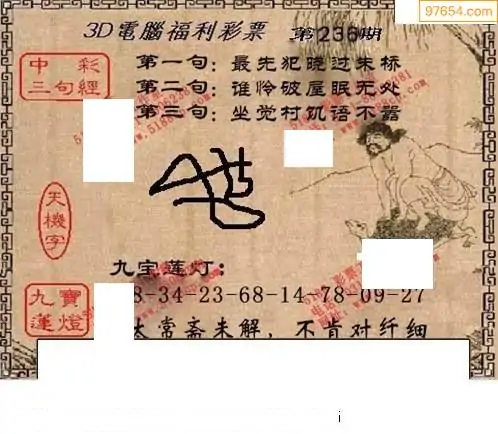 97654.com
3D電腦福利彩票 第236期
中彩
三句經
第一句：最先犯晓过朱桥
第二句：谁怜破屋眠无处
第三句：坐觉村饥语不嚣
天機字
九宝莲灯：
九寶
蓮燈
8-34-23-68-14 78-09-27
太常斋未解，不肯对纤细
i